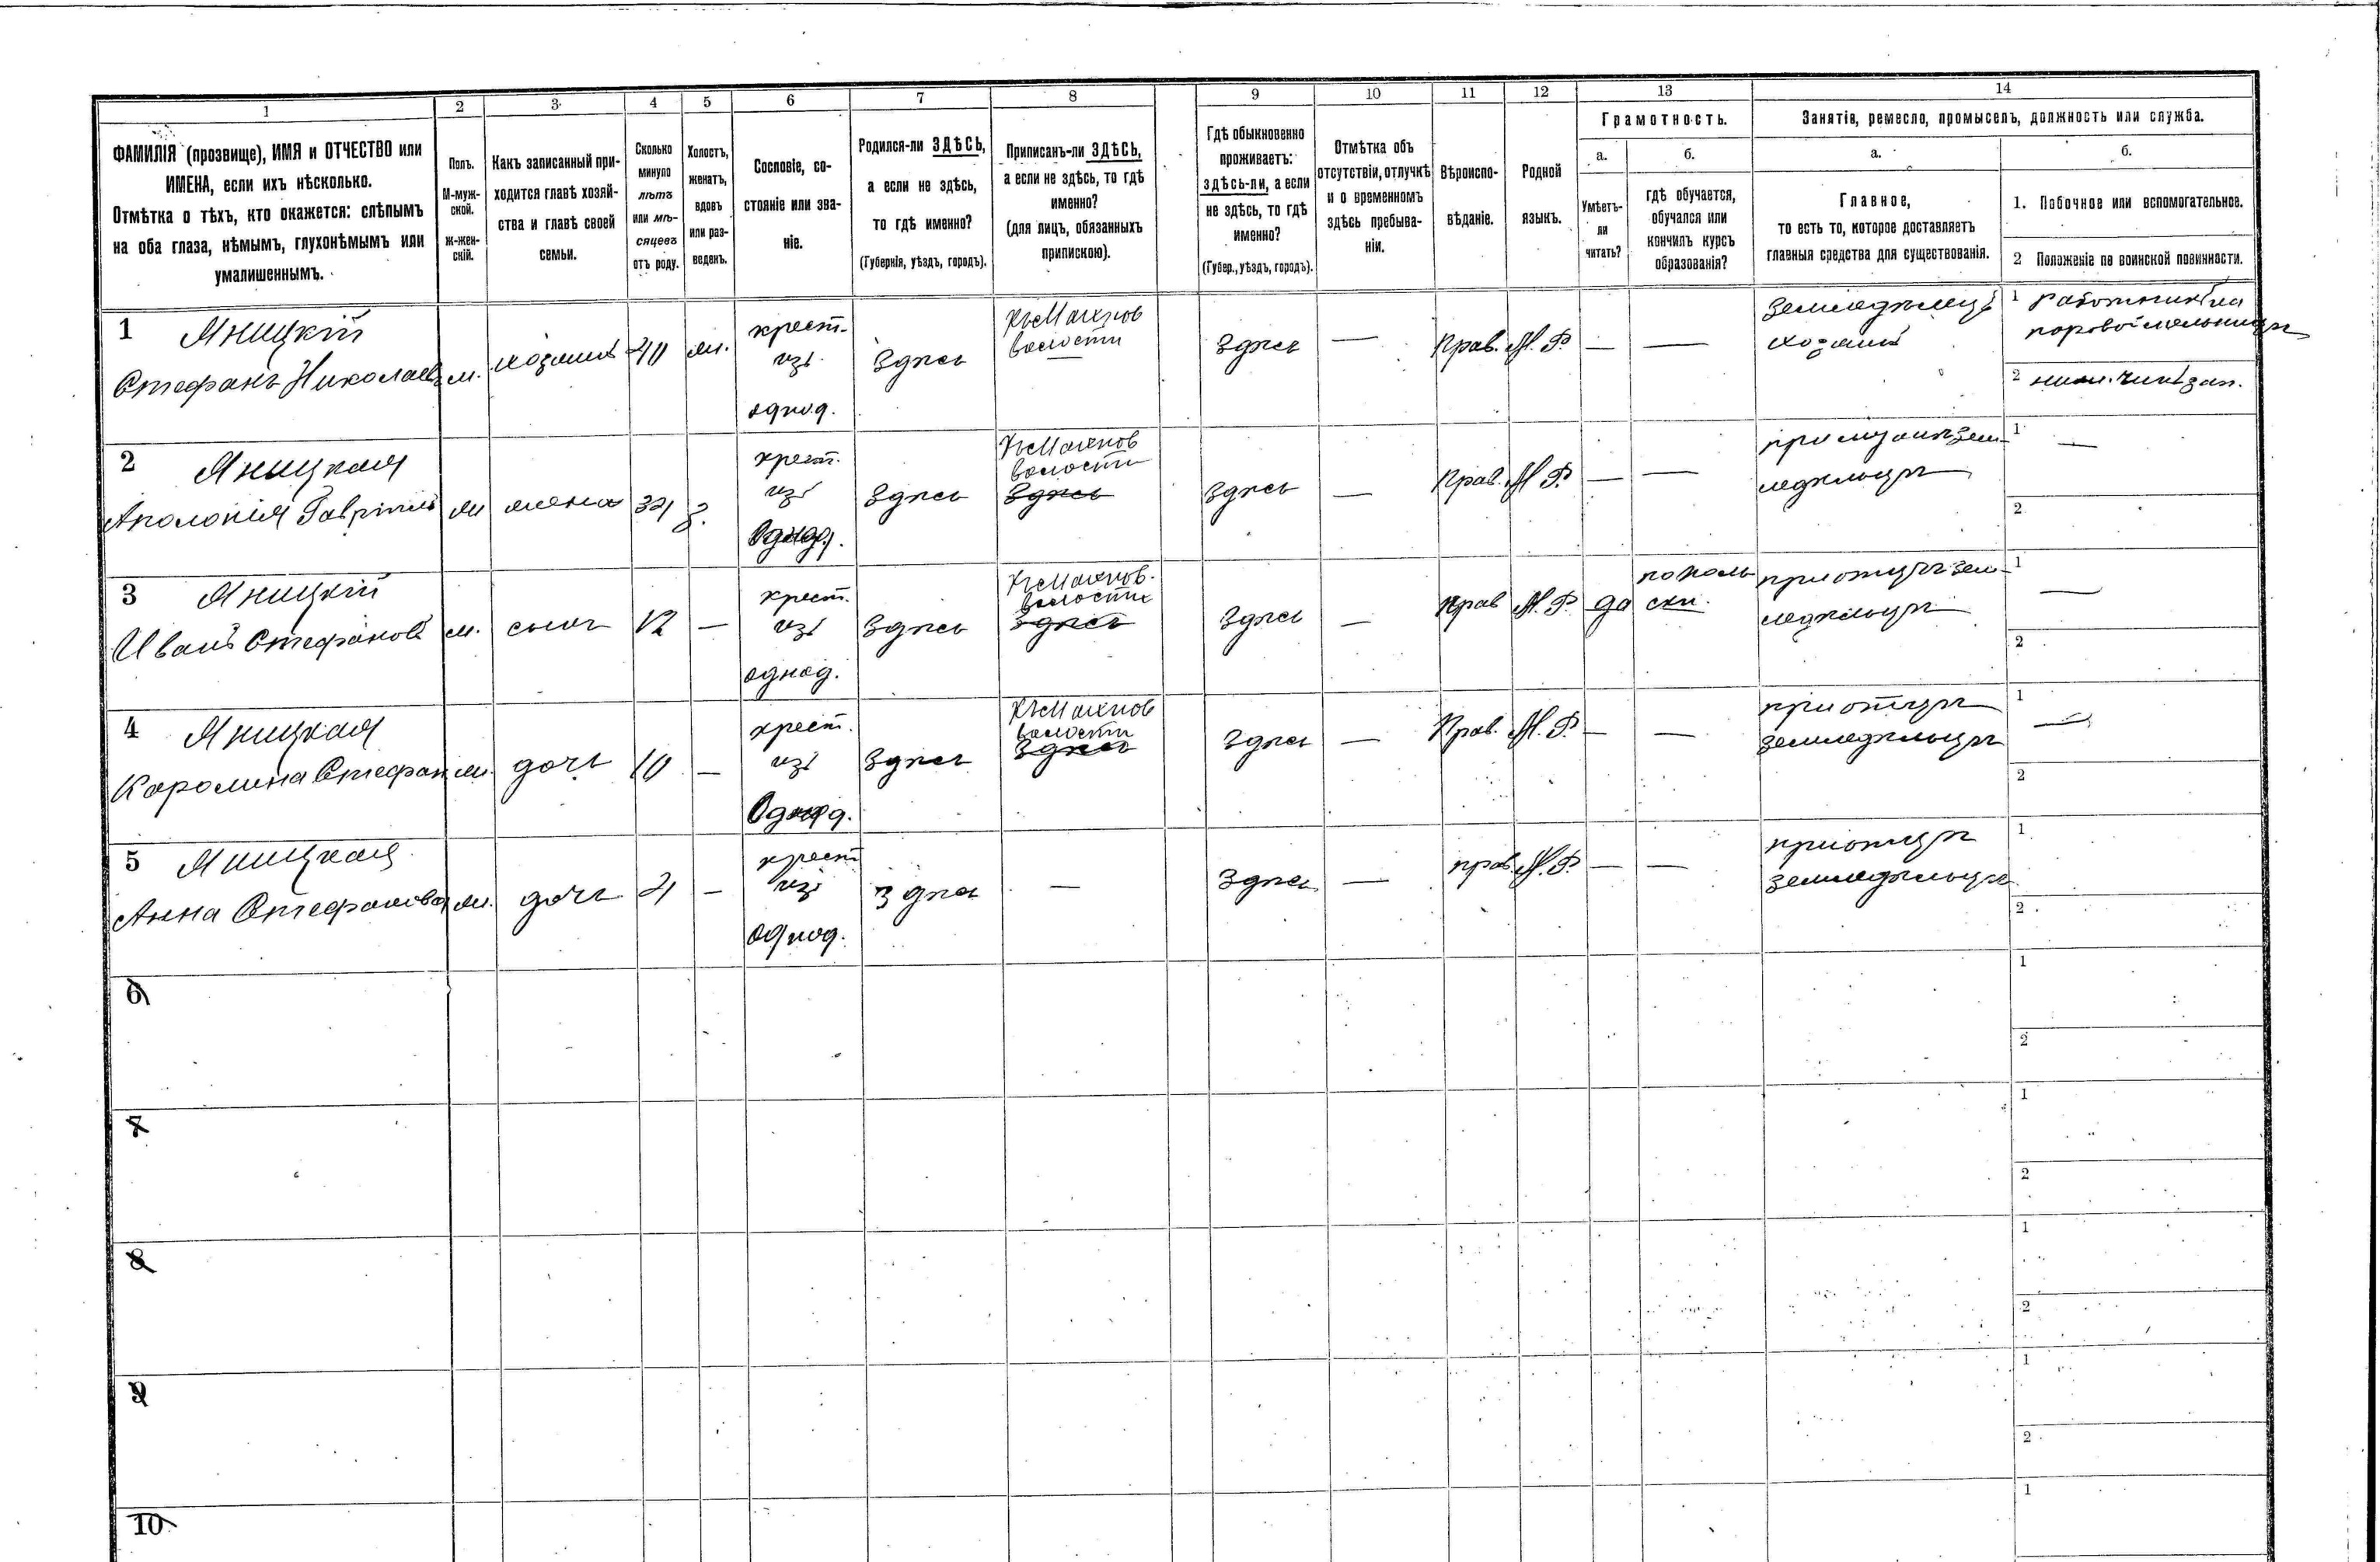 1 2 3 4 5 6 7 8 9 10 11 12 13 14
ФАМИЛІЯ (прозвище), ИМЯ и ОТЧЕСТВО или
ИМЕНА, если ихъ нѣсколько.
Отмѣтка о тѣхъ, кто окажется: слѣпымъ
на оба глаза, нѣмымъ, глухонѣмымъ или
умалишеннымъ.
Полъ.
М-муж-
ской.
Ж-жен-
скій.
Какъ записанный при-
ходится главѣ хозяй-
ства и главѣ своей
семьи.
Сколько
минуло
лѣтъ
или мѣ-
сяцевъ
отъ роду.
Холостъ,
женатъ,
вдовъ
или раз-
веденъ.
Сословіе, со-
стояніе или зва-
ніе.
Родился-ли ЗДѢСЬ,
а если не здѣсь,
то гдѣ именно?
(Губернія, уѣздъ, городъ).
Приписанъ-ли ЗДѢСЬ,
а если не здѣсь, то гдѣ
именно?
(для лицъ, обязанныхъ
припискою).
Гдѣ обыкновенно
проживаетъ:
здѣсь-ли, а если
не здѣсь, то гдѣ
именно?
(Губер., уѣздъ, городъ).
Отмѣтка объ
отсутствіи, отлучкѣ
и о временномъ
здѣсь пребыва-
ніи.
Вѣроиспо-
вѣданіе.
Родной
языкъ.
Грамотность.
а.
Умѣетъ-
ли
читать?
б.
гдѣ обучается,
обучался или
кончилъ курсъ
образованія?
Занятіе, ремесло, промыселъ, должность или служба.
а.
Главное,
то есть то, которое доставляетъ
главныя средства для существованія.
б.
1. Побочное или вспомогательное.
2 Положеніе по воинской повинности.
1 Яницкій
Стефанъ Николаевъ
м.
хозяинъ
40
ж.
крест.
изъ
однод.
Здѣсь
волости
Здѣсь
—
Прав.
М. Р.
—
—
Земледѣлецъ
хозяинъ
1 работникъ на
паровой мельницы
2 ниж. чинъ зап.
2 Яницкая
Аполонія
ж
жена
з.
крест.
изъ
Однод.
Здѣсь
волости
Здѣсь
Здѣсь
—
Прав.
М. Р.
—
—
при мужѣ зем-
ледѣльцѣ
1 —
2
3 Яницкій
Иванъ Стефановъ
м.
сынъ
12
—
крест.
изъ
однод.
Здѣсь
волости
Здѣсь
Здѣсь
—
Прав
М. Р.
да
пополь
ски.
при отцѣ зем-
ледѣльцѣ
1 —
2
4 Яницкая
Каролина Стефан
ж.
дочь
10
—
крест.
изъ
Однод.
Здѣсь
волости
Здѣсь
Здѣсь
—
Прав.
М. Р.
—
—
при отцѣ
земледѣльцѣ
1 —
2
5 Яницкая
Анна Стефанова
ж.
дочь
—
крест
изъ
однод.
Здѣсь
—
Здѣсь
—
прав.
М. Р.
—
—
при отцѣ
земледѣльцѣ
1
2
6
1
2
7
1
2
8
1
2
9
1
2
10
1